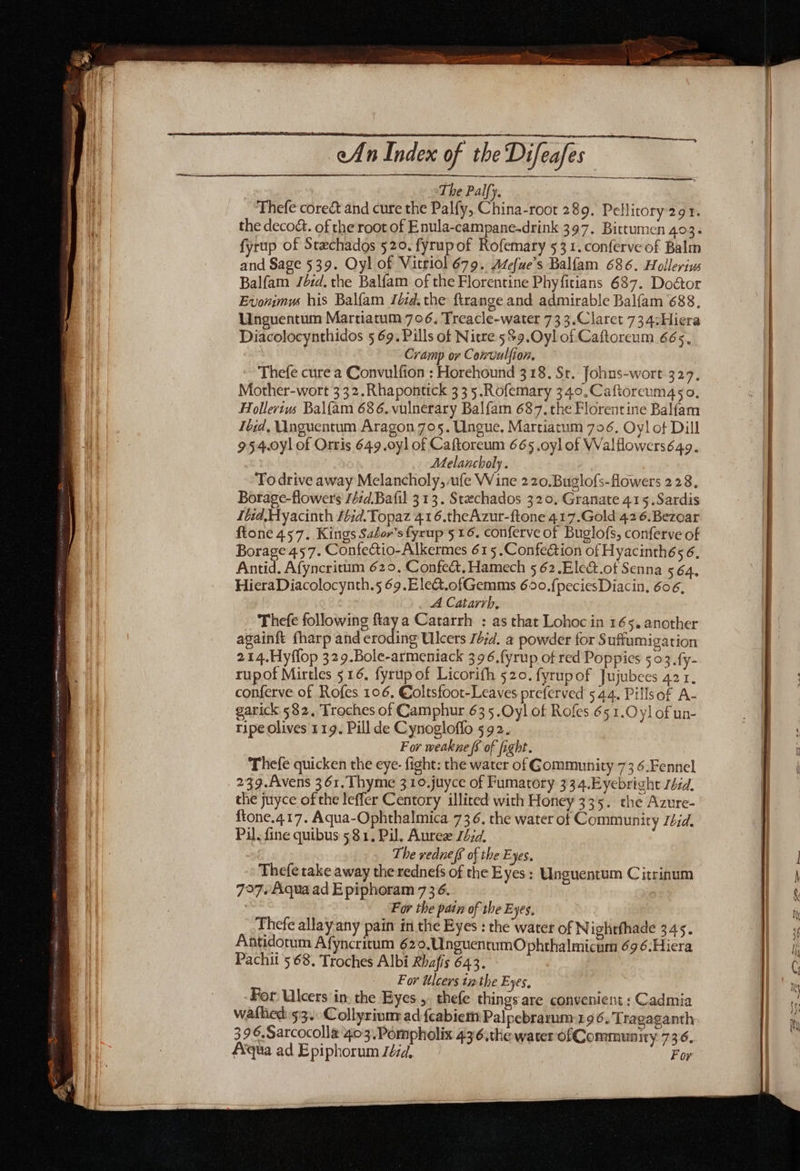 An Index of the Diſeaſes
The Palſy.
Theſe corect and cure the Palſy, China-root 289. Pellitory 291.
the decoct. of the root of Enula-campane-drink 397. Bittumen 403.
ſyrup of Stæchados 520. ſyrup of Roſemary 531. conſerve of Balm
and Sage 539. Oyl of Vitriol 679. Meſue's Balſam 686. Hollerius
Balſam Ibid. the Balſam of the Florentine Phyſitians 687. Doctor
Evonimus his Balſam Ibid. the ſtrange and admirable Balſam 688.
Unguentum Martiatum 706. Treacle-water 733. Claret 734. Hiera
Diacolocynthidos 569. Pills of Nitre 589. Oyl of Caſtoreum 665.
Cramp or Convulſion.
Theſe cure a Convulſion : Horehound 318. St. Johns-wort 327.
Mother-wort 332. Rhapontick 335. Roſemary 340. Caſtoreum 450.
Hollerius Balſam 686. vulnerary Balſam 687. the Florentine Balſam
Ibid. Unguentum Aragon 705. Ungue. Martiatum 706. Oyl of Dill
954. oyl of Orris 649. oyl of Caſtoreum 665. oyl of VValflowers 649.
Melancholy.
To drive away Melancholy, uſe VVine 220. Bugloſs-flowers 228.
Borage-flowers Ibid. Baſil 313. Stæchados 320. Granate 415. Sardis
Ibid. Hyacinth Ibid. Topaz 416. the Azur-ſtone 417. Gold 426. Bezoar
ſtone 457. Kings Sabor's ſyrup 516. conſerve of Bugloſs, conſerve of
Borage 457. Confectio-Alkermes 615. Confection of Hyacinthes 6.
Antid. Aſyncritum 620. Confect. Hamech 562. Elect. of Senna 564.
HieraDiacolocynth. 569. Elect. of Gemms 600. ſpecies Diacin. 606.
A Catarrh.
Theſe following ſtay a Catarrh : as that Lohoc in 165. another
againſt ſharp and eroding Ulcers Ibid. a powder for Suffumigation
214. Hyſſop 329. Bole-armeniack 396. ſyrup of red Poppies 503. ſy-
rup of Mirtles 516. ſyrup of Licoriſh 520. ſyrup of Jujubees 421.
conſerve of Roſes 106. Coltsfoot-Leaves preſerved 544. Pills of A-
garick 582. Troches of Camphur 635. Oyl of Roſes 651. Oyl of un-
ripe olives 119. Pill de Cynogloſſo 592.
For weakneſs of ſight.
Theſe quicken the eye-ſight: the water of Community 736. Fennel
239. Avens 361. Thyme 310. juyce of Fumatory 334. Eyebright Ibid.
the juyce of the leſſer Centory illited with Honey 335. the Azure-
ſtone. 417. Aqua-Ophthalmica 736. the water of Community Ibid.
Pil. ſine quibus 581. Pil. Aureæ Ibid.
The redneſs of the Eyes.
Theſe take away the redneſs of the Eyes : Unguentum Citrinum
707. Aqua ad Epiphoram 736.
For the pain of the Eyes.
Theſe allay any pain in the Eyes : the water of Nightſhade 345.
Antidotum Aſyncritum 620. Unguentum Ophthalmicum 696. Hiera
Pachii 568. Troches Albi Rhaſis 643.
For Ulcers in the Eyes.
For Ulcers in the Eyes, theſe things are convenient : Cadmia
waſhed 53. Collyrium ad ſcabiem Palpebrarum 196. Tragaganth
396. Sarcocolla 403. Pompholix 436. the water of Community 736.
Aqua ad Epiphorum Ibid.
For